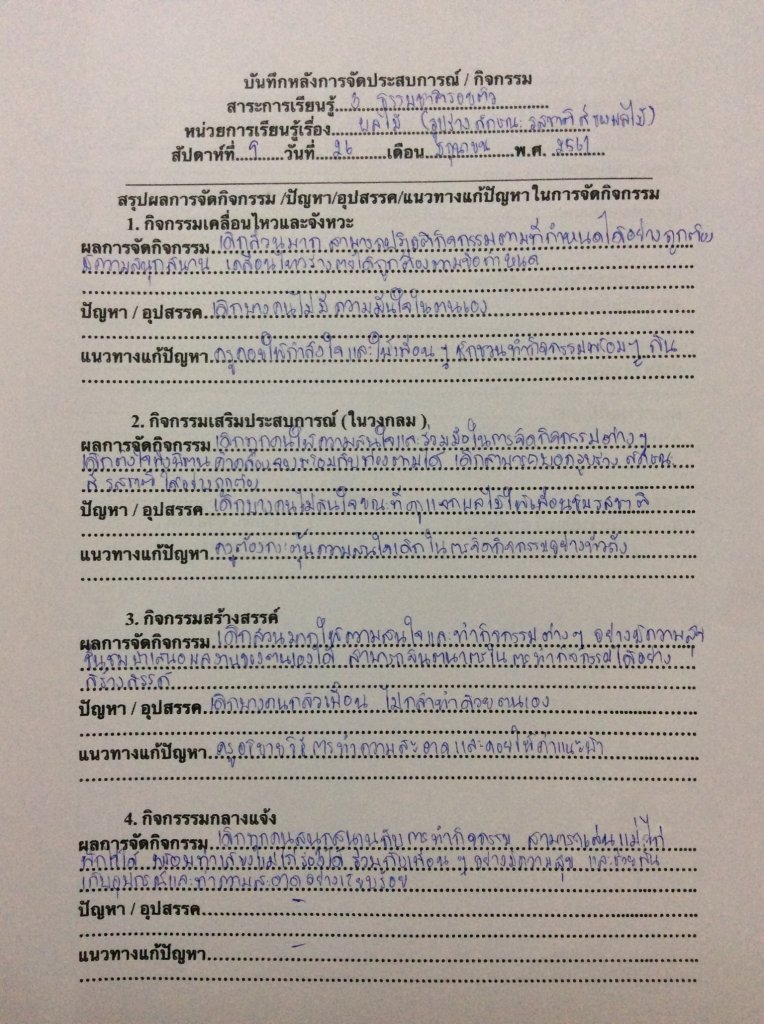 บันทึกหลังการจัดประสบการณ์ / กิจกรรม
สาระการเรียนรู้ 3 ธรรมชาติรอบตัว
หน่วยการเรียนรู้เรื่อง ผลไม้ (รูปร่าง ลักษณะ รสชาติ สี ของผลไม้)
สัปดาห์ที่ 9 วันที่ 26 เดือน มิถุนายน พ.ศ. 2561
สรุปผลการจัดกิจกรรม /ปัญหา/อุปสรรค/แนวทางแก้ปัญหาในการจัดกิจกรรม
1. กิจกรรมเคลื่อนไหวและจังหวะ
ผลการจัดกิจกรรม เด็กส่วนมาก สามารถปฏิบัติกิจกรรมตามที่กำหนดได้อย่างถูกต้อง
มีความสนุกสนาน เคลื่อนไหวร่างกายได้ถูกต้องตามข้อกำหนด
ปัญหา / อุปสรรค เด็กบางคนไม่มีความมั่นใจในตนเอง
แนวทางแก้ปัญหา ครูคอยให้กำลังใจและให้เพื่อน ๆ ชักชวนทำกิจกรรมพร้อมๆ กัน
2. กิจกรรมเสริมประสบการณ์ (ในวงกลม )
ผลการจัดกิจกรรม เด็กทุกคนให้ความสนใจและร่วมมือในการจัดกิจกรรมต่างๆ
เด็กตั้งใจฟังนิทาน คำคล้องจองพร้อมกับท่องตามได้ เด็กสามารถบอกรูปร่าง ลักษณะ
สี รสชาติ ได้อย่างถูกต้อง
ปัญหา / อุปสรรค เด็กบางคนไม่สนใจขณะที่ครูแจกผลไม้ให้เพื่อนชิมรสชาติ
แนวทางแก้ปัญหา ครูต้องกระตุ้นความสนใจเด็กในการจัดกิจกรรมอย่างทั่วถึง
3. กิจกรรมสร้างสรรค์
ผลการจัดกิจกรรม เด็กส่วนมากให้ความสนใจและทำกิจกรรมต่างๆ อย่างมีความสุข
ชื่นชม นำเสนอผลงานของตนเองได้ สามารถจินตนาการในการทำกิจกรรมได้อย่าง
สร้างสรรค์
ปัญหา / อุปสรรค เด็กบางคนกลัวเปื้อน ไม่กล้าทำด้วยตนเอง
แนวทางแก้ปัญหา ครูอธิบายวิธีการทำความสะอาด และคอยให้คำแนะนำ
4. กิจกรรรมกลางแจ้ง
ผลการจัดกิจกรรม เด็กทุกคนสนุกสนานกับการทำกิจกรรม สามารถเล่นแม่ไก่
ฟักไข่ได้ พร้อมทำเสียงแม่ไก่ร้องได้ ร่วมกับเพื่อน ๆ อย่างมีความสุข และช่วยกัน
เก็บอุปกรณ์และทำความสะอาดอย่างเรียบร้อย
ปัญหา / อุปสรรค -
แนวทางแก้ปัญหา -